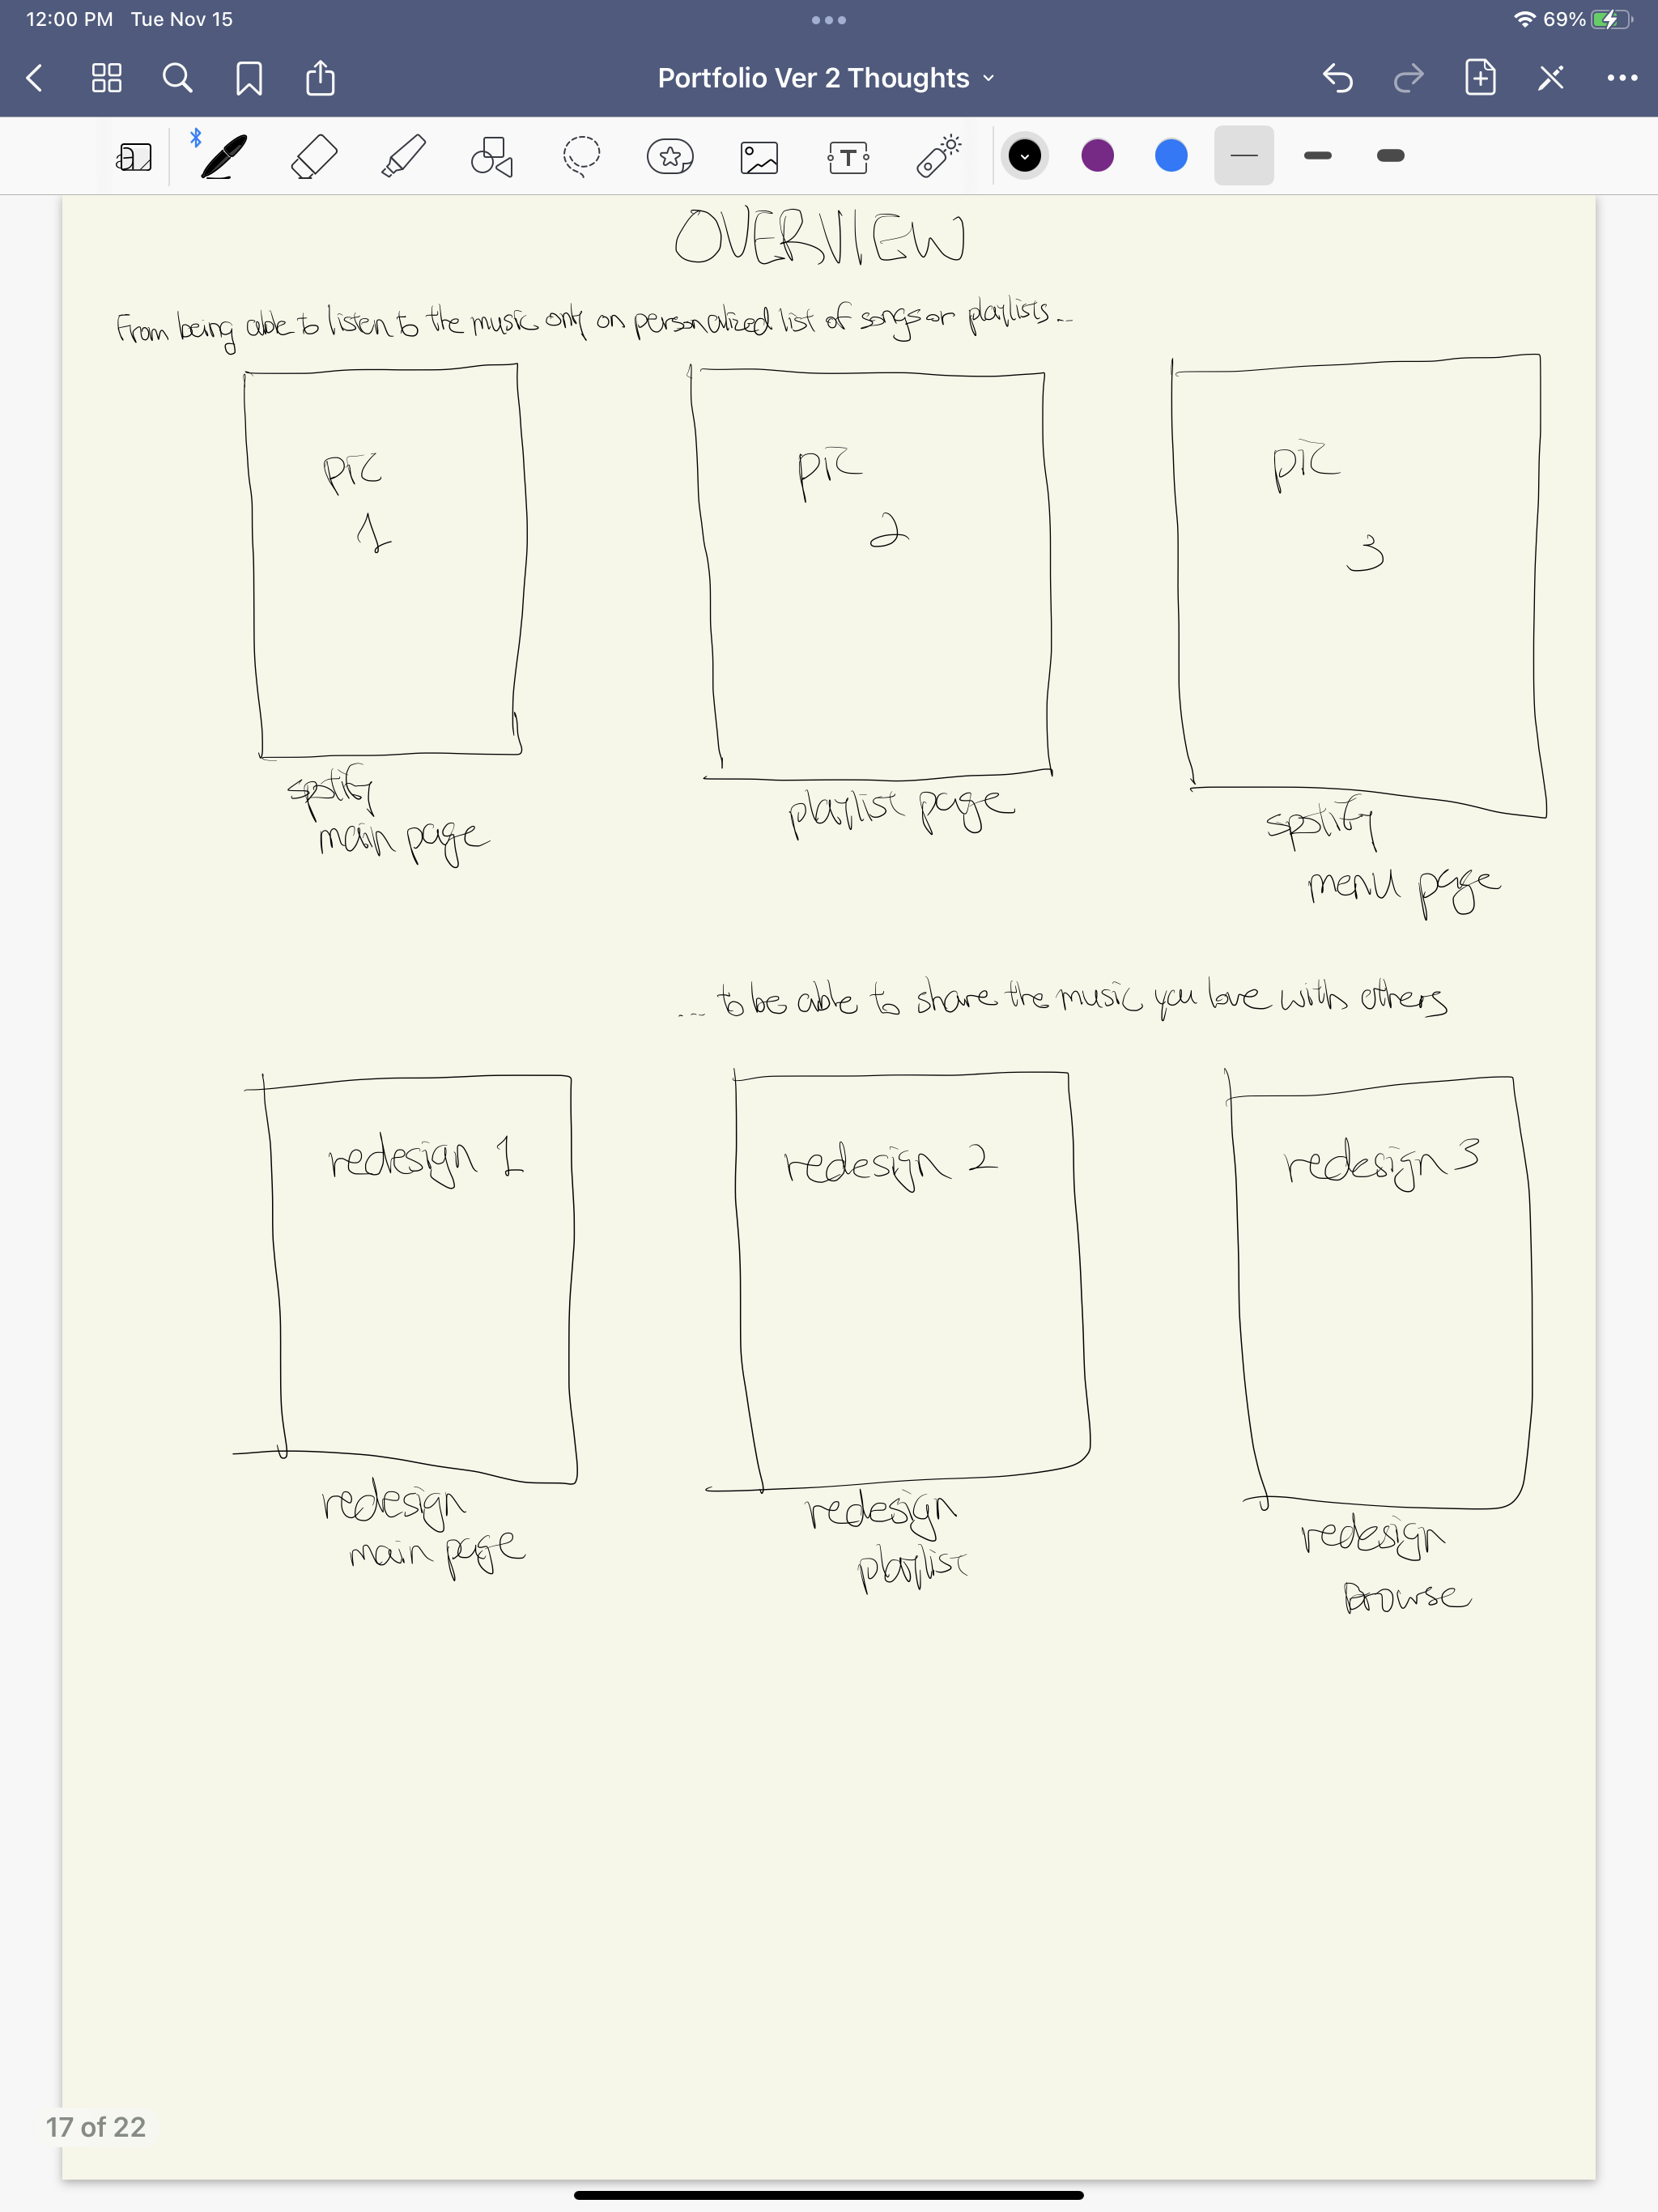 12:00 PM Tue Nov 15
69%
Portfolio Ver 2 Thoughts
OVERVIEW
From being able to listen to the music only on personalized list of songs or playlists...
pic
1
pic
2
pic
3
spotify
main page
playlist page
spotify
menu page
.... to be able to share the music you love with others
redesign 1
redesign 2
redesign 3
redesign
main page
redesign
playlist
redesign
browse
17 of 22